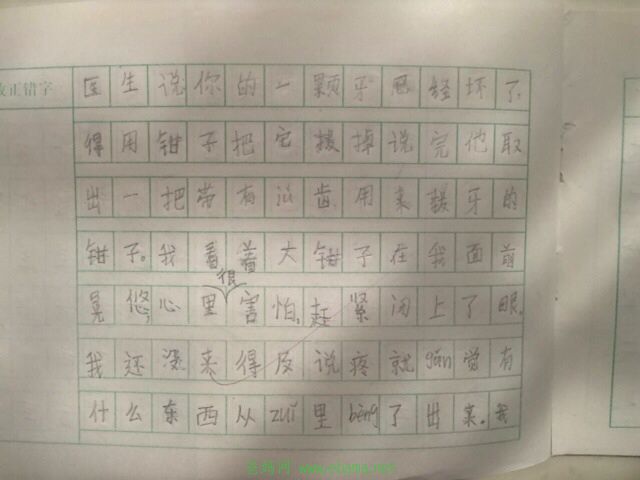 改正错字
医生说你的一颗牙已经坏了,
得用钳子把它拔掉说完他取
出一把带有沿齿用来拔牙的
钳子。我看着大钳子在我面前
很
晃悠,心里害怕,赶紧闭上了眼,
我还没来得及说疼就gǎn觉有
什么东西从zuǐ里bèng了出来。我
www.